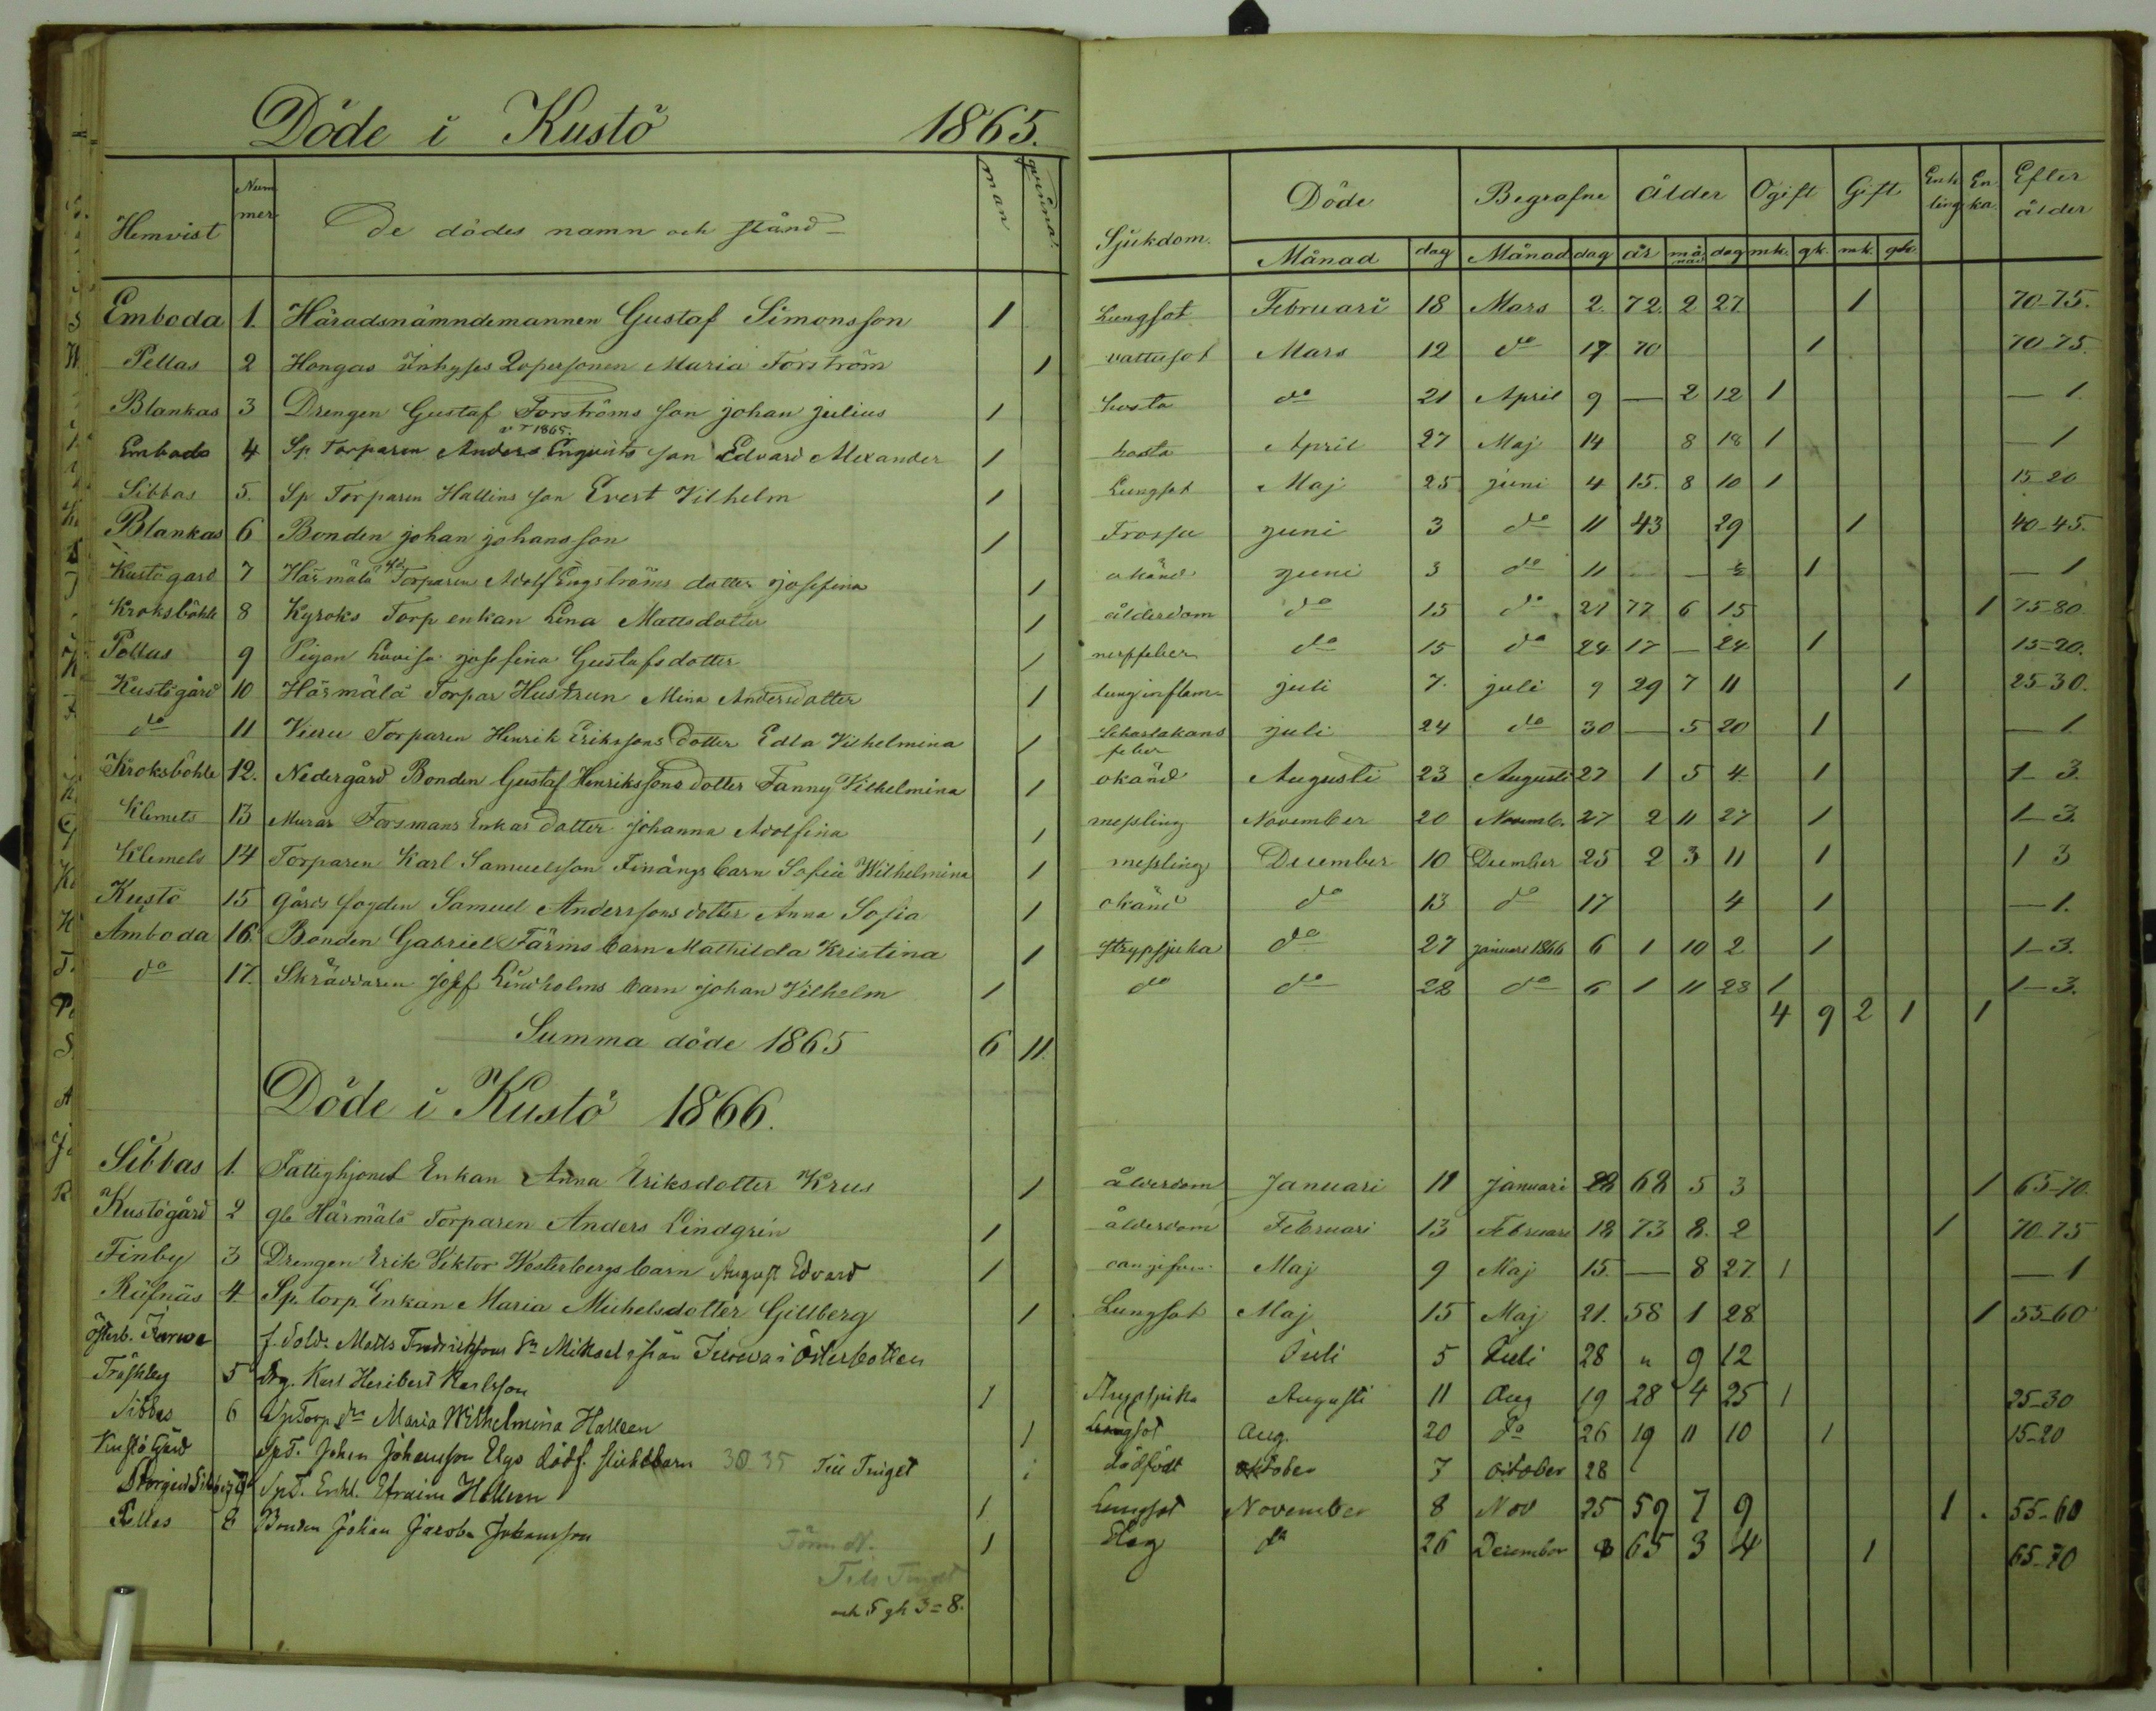 Döde i Kustö 1865.
Hemvist Nummer De dödes namn och stånd man qvinna Sjukdom. Döde Begrafne Ålder Ogift Gift Enkling Enka Efter ålder
Månad dag Månad dag år månad dag mk. qk. mk. qk.
Emboda 1. Häradsnämndemannen Gustaf Simonsson 1 Lungsot Februari 18 Mars 2. 72. 2 27. 1 70-75.
Pellas 2 Hongas Inhyses Qvpersonen Maria Forström 1 vattusot Mars 12 do 17 70 1 70-75.
Blankas 3 Drengen Gustaf Forströms son johan julius 1 hosta do 21 April 9 — 2 12 1 — 1.
1865.
Emboda 4 Sp Torparen Anders Enqvists son Edvard Alexander 1 hosta April 27 Maj 14 8 18 1 — 1
Sibbas 5. Sp Torparen Hallins son Evert Vilhelm 1 Lungsot Maj 25 juni 4 15. 8 10 1 15-20
Blankas 6 Bonden johan johansson 1 Frossa juni 3 do 11 43 29 1 40-45.
Kustögård 7 Härmälä Torparen Adolf Engströms dotter josefina 1 okänd juni 3 do 11 — — ½ 1 — 1
Kroksböhle 8 Kyroks Torp enkan Lena Mattsdotter 1 ålderdom do 15 do 21 77 6 15 1 75-80
Pellas 9 Pigan Lovisa josefina Gustafsdotter 1 nerffeber do 15 do 24 17 — 24 1 15-20.
Kustögård 10 Härmälä Torpar Hustrun Mina Andersdotter 1 lunginflam. juli 7. juli 9 29 7 11 1 25-30.
do 11 Vieru Torparen Henrik Erikssons dotter Edla Vilhelmina 1 Scharlakans feber juli 24 do 30 — 5 20 1 — 1
Kroksböhle 12. Nedergård Bonden Gustaf Henrikssons dotter Fanny Vilhelmina 1 okänd Augusti 23 Augusti 27 1 5 4 1 1-3.
Klemets 13 Murar Forsmans Enkas dotter Johanna Adolfina 1 messling November 20 Novemb. 27 2 11 27 1 1-3.
Klemets 14 Torparen Karl Samuelsson Finängs barn Sofia Wilhelmina 1 messling December 10 December 25 2 3 11 1 1 3
Kustö 15 gårds fogden Samuel Anderssons dotter Anna Sofia 1 okänd do 13 do 17 4 1 — 1.
Amboda 16. Bonden Gabriel Färms barn Mathilda Kristina 1 Strypsjuka do 27 januari 1866 6 1 10 2 1 1-3.
do 17. Skräddaren Josef Lindholms barn johan Vilhelm 1 do do 28 do 6 1 11 28 1 1-3.
4 9 2 1 1
Summa döde 1865 6 11.
Döde i Kustö 1866.
Sibbas 1. Fattighjonet Enkan Anna Eriksdotter Krus 1 ålderdom Januari 11 januari 28 68 5 3 1 65-70.
Kustögård 2 gla Härmälä Torparen Anders Lindgrén 1 ålderdom Februari 13 Februari 18 73 8. 2 1 70-75
Finby 3 Drengen Erik Viktor Westerbergs barn August Edvard 1 Maj 9 Maj 15. — 8 27. 1 — 1
Räfnäs 4. Sp. torp Enkan Maria Michelsdotter Gillberg 1 Lungsot Maj 15 Maj 21. 58 1 28 1 55-60
Österb. f. Sold. Matts Fredrikssons Sn Mikael från i Österbotten Juli 5 Juli 28 „ 9 12
Träskby 5 Drg. Karl Heribert Karlsson 1 Strypsjuka Augusti 11 Aug 19 28 4 25 1 25-30
Sibbas 6 SpTorp dtr Maria Wilhelmina Hallen 1 Lungsot Aug. 20 do 26 19 11 10 1 15-20
Kustö Gård SpT. Johan Johansson Elgs dödf. flickebarn 30 35 Till Tinget 1 dödfödt oktober 7 october 28
7 SpT. Enkl. Efraim Hallen 1 Lungsot November 8 Nov 25 59 7 9 1 55-60
Pellas 8 Bonden Johan Jacob Johansson 1 Slag do 26 December 8 65 3 4 1 65-70
Till Tinget
och 5 qk 3=8.